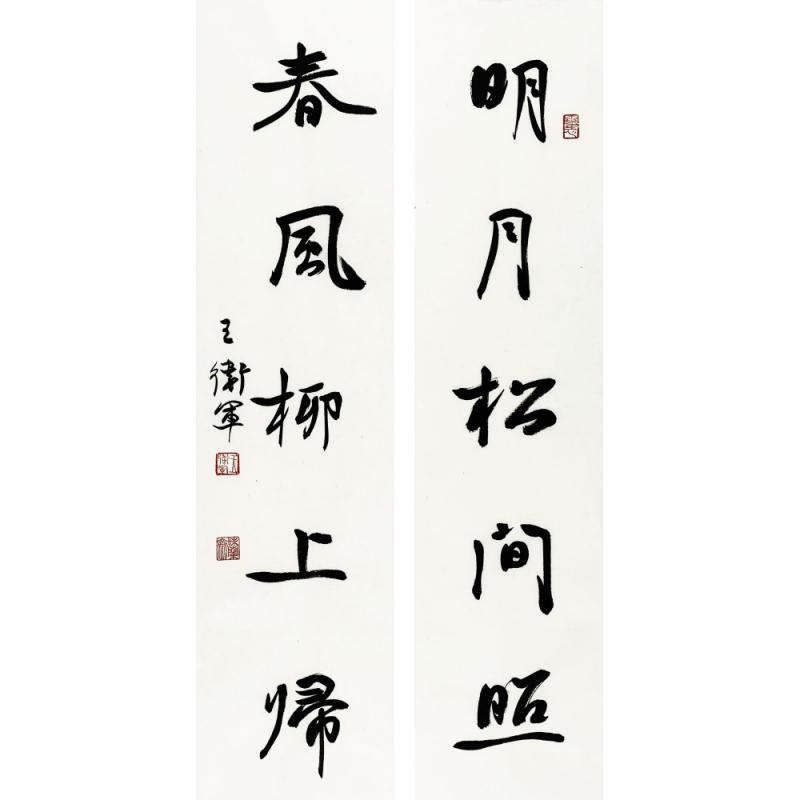 明月松间照
春風柳上歸
王衛軍